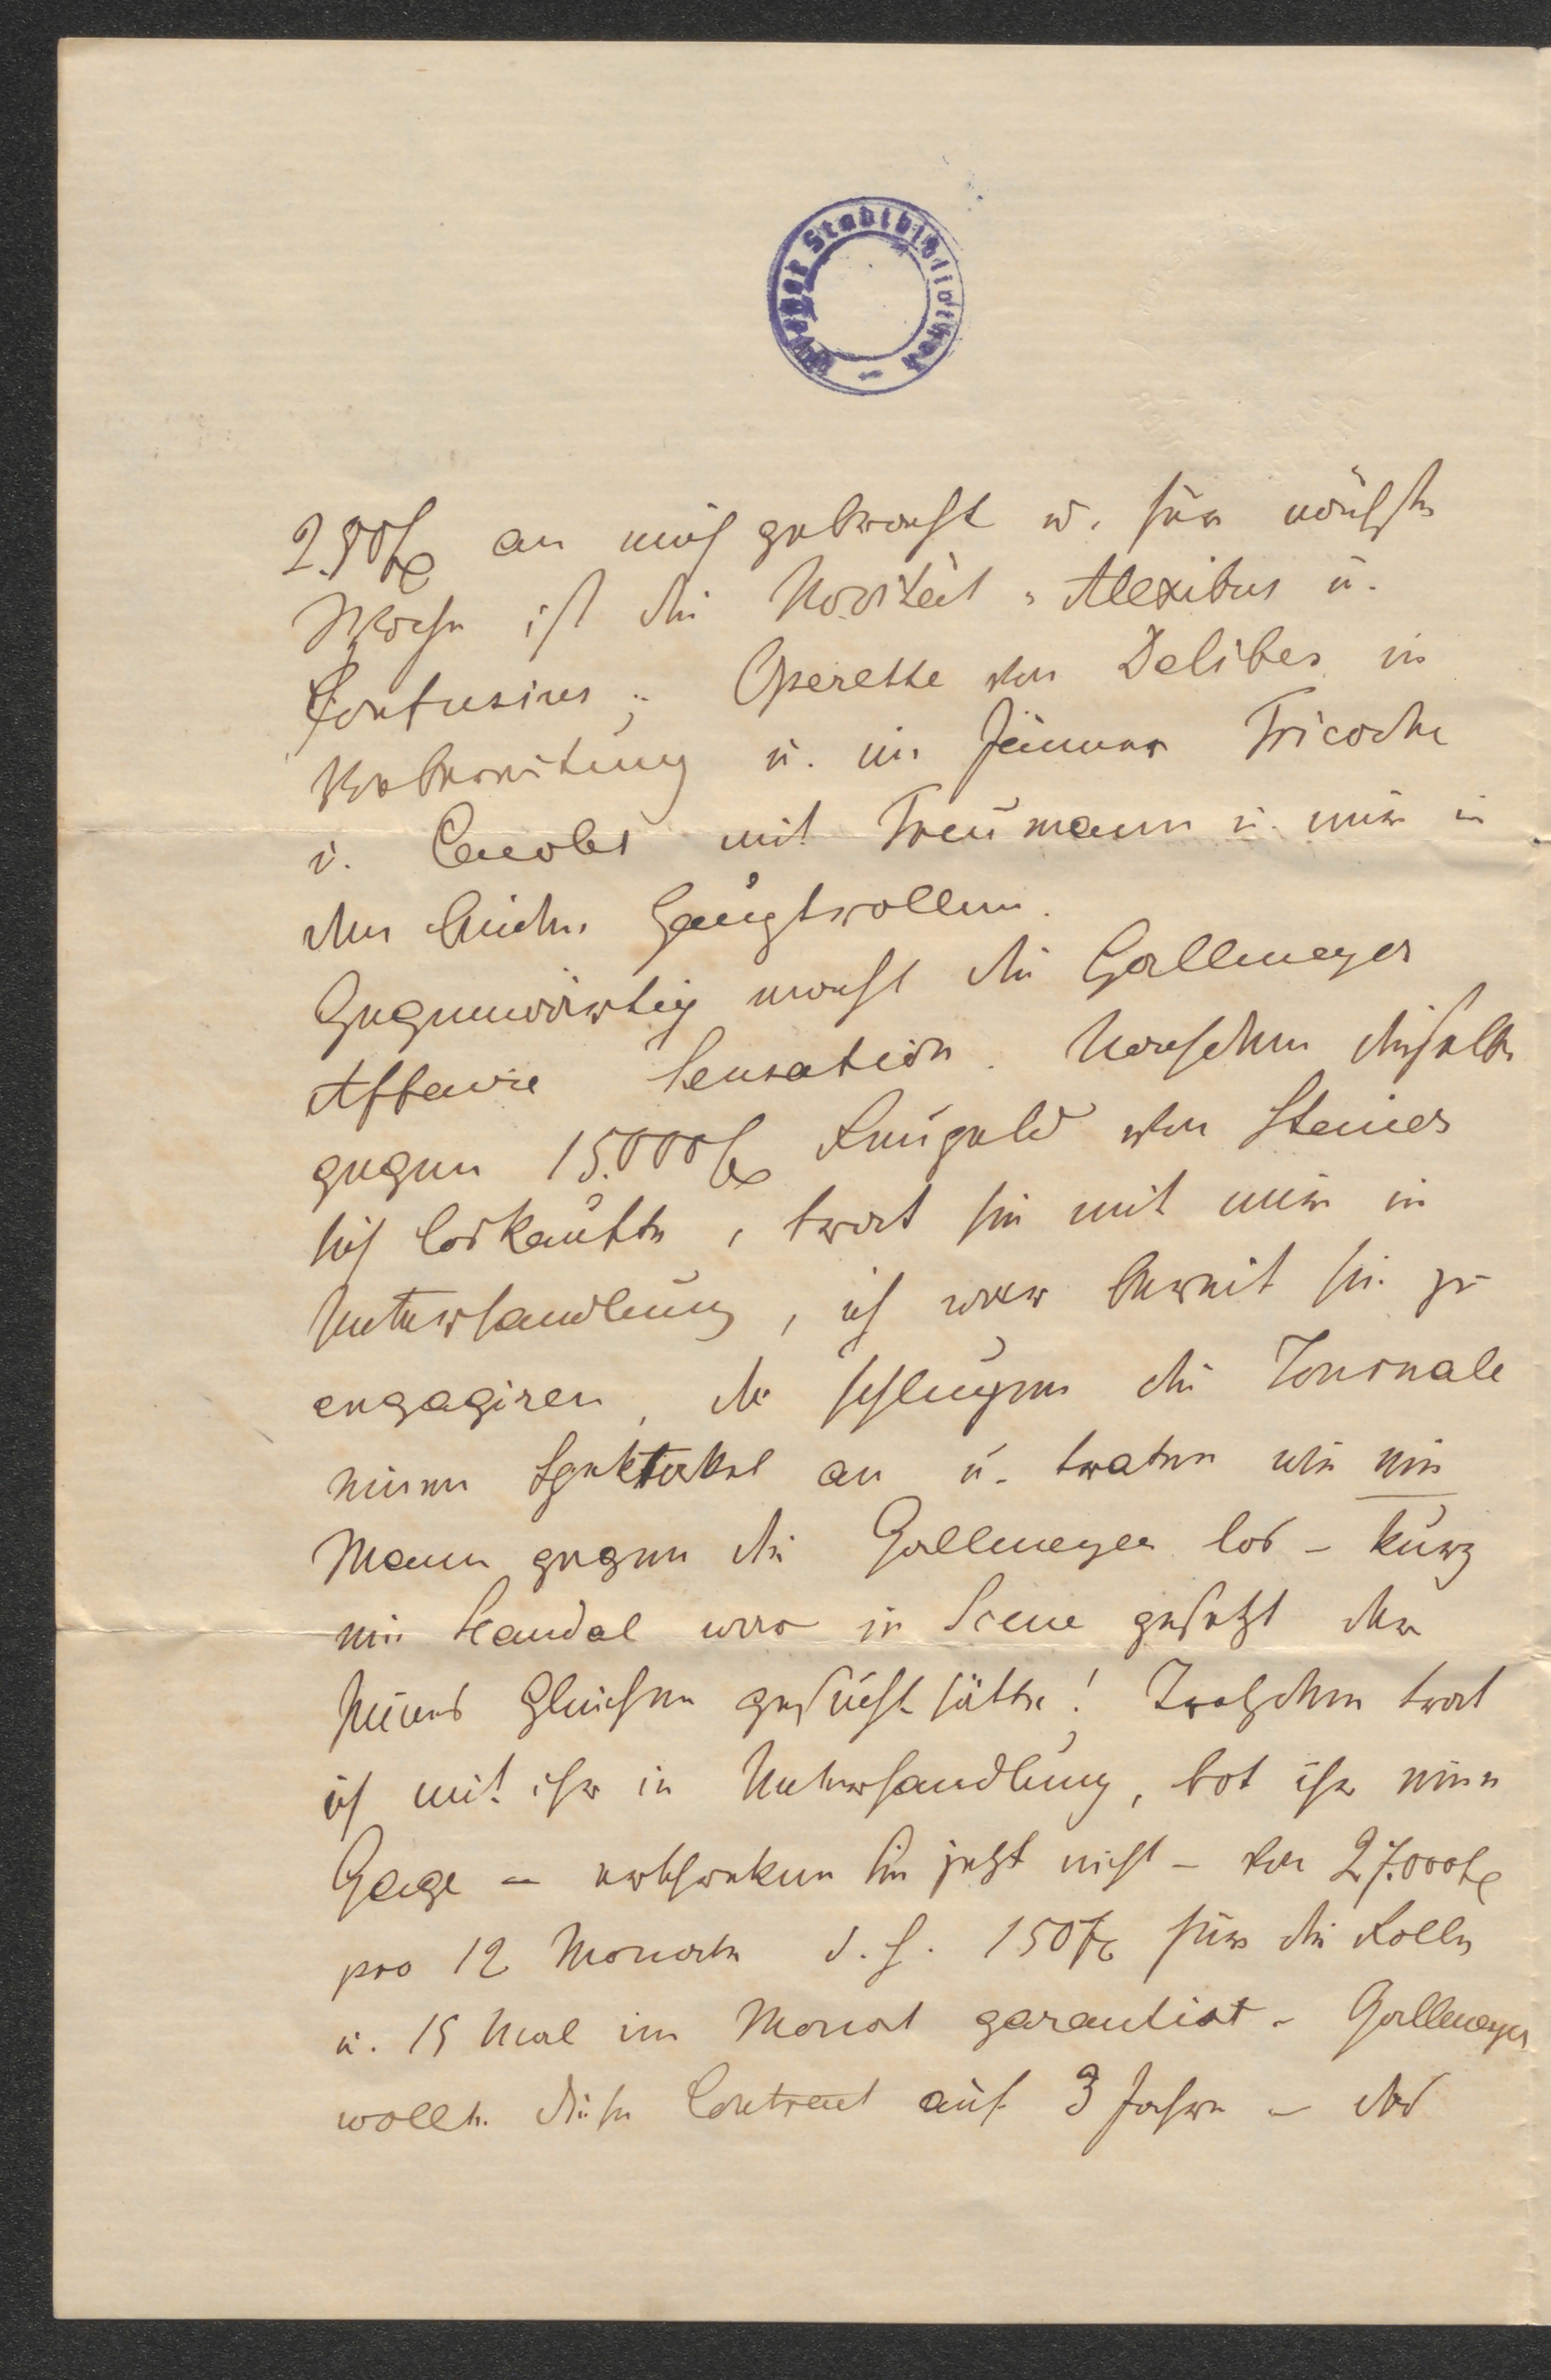 Wiener Stadtbibliothek
250 fl an mich gebracht u. für nächste
Woche ist die Novität „Alexibus u.
Confusius“ Operette von Delibes in
Vorbereitung u. im Jänner Tricoche
u. Cacolet mit Treumann u. mir in
den beiden Hauptrollen.
Gegenwärtig macht die Gallmeyer
Affaire Sensation. Nachdem dieselbe
gegen 15.000 fl Reugeld von Steiner
sich loskaufte, trat sie mit mir in
Unterhandlung, ich war bereit sie zu
engagiren, da schlugen die Journale
einen Spektakel an u. traten wie ein
Mann gegen die Gallmeyer los – kurz
ein Scandal war in Scene gesetzt der
seines Gleichen gesucht hätte! Trotzdem trat
ich mit ihr in Unterhandlung, bot ihr eine
Gage – erschreken Sie jetzt nicht – von 27.000 fl
pro 12 Monate d. h. 150 fl für die Rolle
u. 15 Mal im Monat garantirt – Gallmeyer
wollte diesen Contract auf 3 Jahre – das